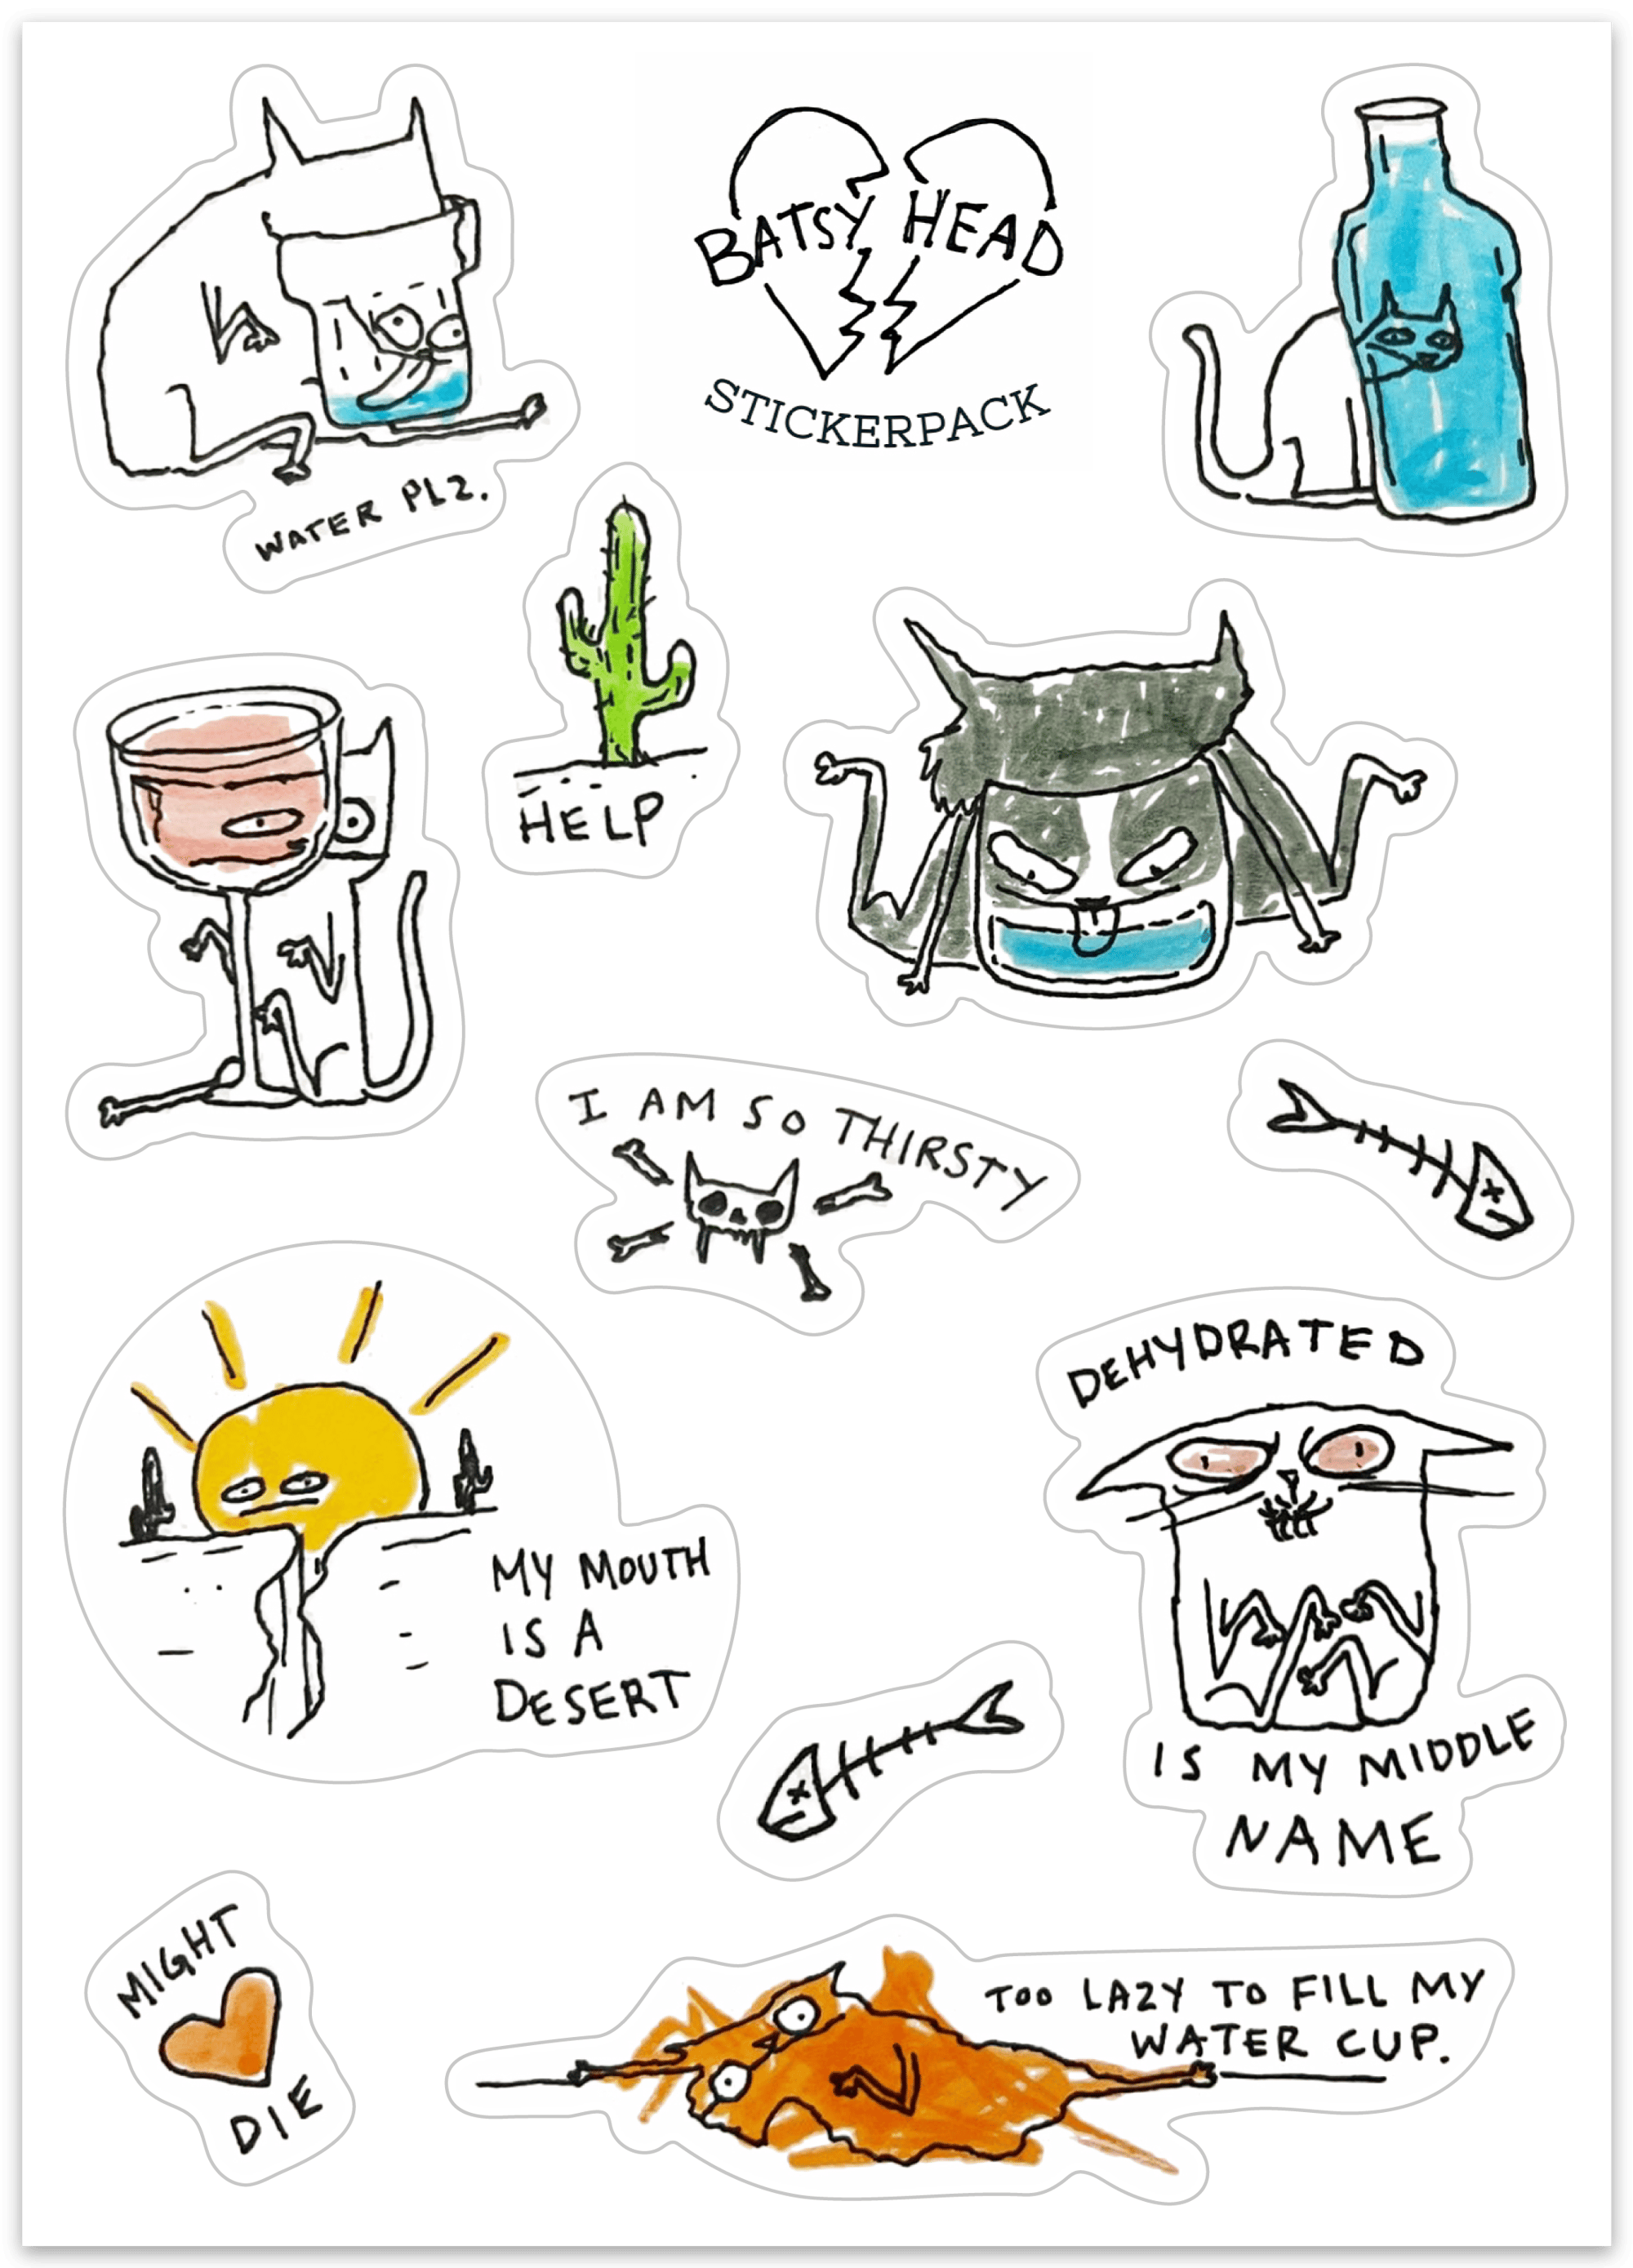 BATSY HEAD
STICKERPACK
WATER PLZ.
HELP
I AM SO THIRSTY
DEHYDRATED
IS MY MIDDLE
NAME
MY MOUTH
IS A
DESERT
MIGHT
DIE
TOO LAZY TO FILL MY
WATER CUP.